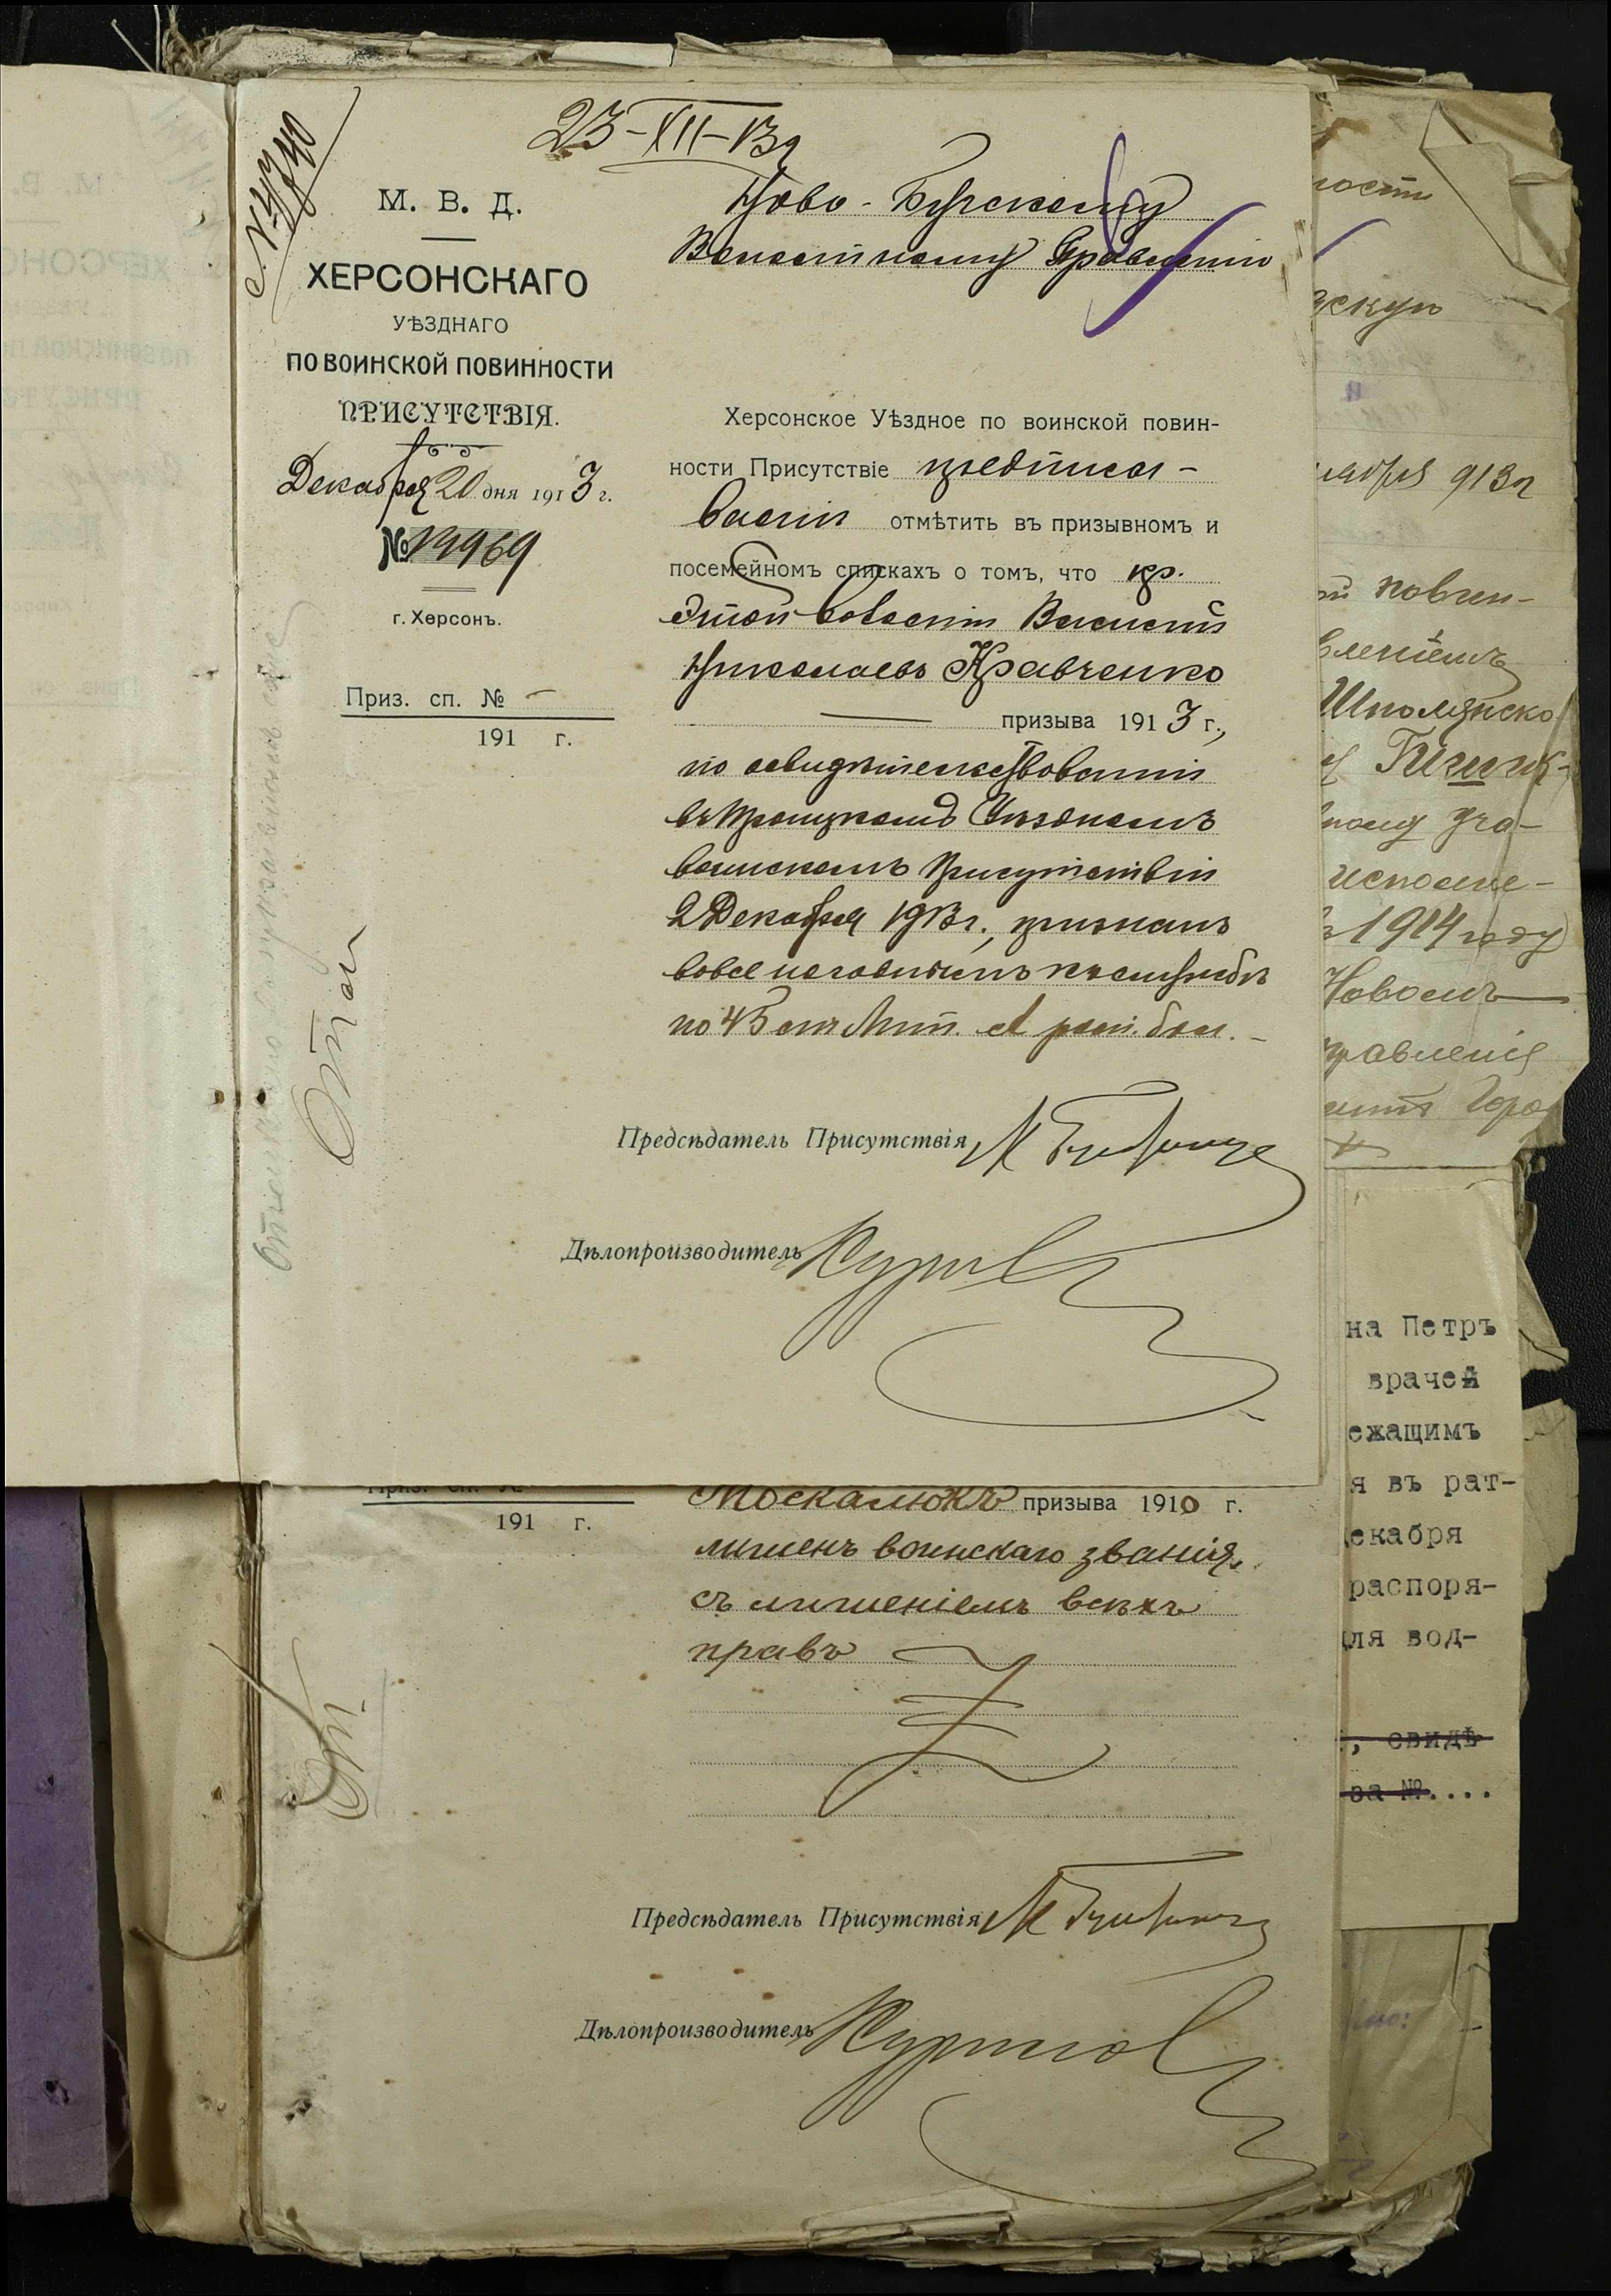 23-XII-13г
№ 4740
М. В. Д.
ХЕРСОНСКАГО
УѢЗДНАГО
ПО ВОИНСКОЙ ПОВИННОСТИ
ПРИСУТСТВІЯ.
Декабря 20 дня 1913 г.
№ 13969
г. Херсонъ.
Приз. сп. № -
191 г.
Ново-Бугскому
Волостному Правленію
Херсонское Уѣздное по воинской повин-
ности Присутствіе предписы-
ваетъ отмѣтить въ призывномъ и
посемейномъ спискахъ о томъ, что кр.
этой волости Василій
Николаевъ Кравченко
призыва 1913 г.,
по освидѣтельствованіи
въ Троицкомъ Уѣздномъ
воинскомъ Присутствіи
2 Декабря 1913 г., признанъ
вовсе негоднымъ къ службѣ
по 45 ст. Лит. А росп. бол.
Предсѣдатель Присутствія
Дѣлопроизводитель
Приз. сп. №
191 г.
Москалюкъ призыва 1910 г.
лишенъ воинскаго званія,
съ лишеніемъ всѣхъ
правъ
От.
Предсѣдатель Присутствія
Дѣлопроизводитель
ности
913г
ой повин-
вленіемъ
Шполянско
исполне-
1914 году)
Новомъ
правленія
на Петръ
врачей
ежащимъ
я въ рат-
екабря
распоря-
для вод-
, свидѣ
за №....